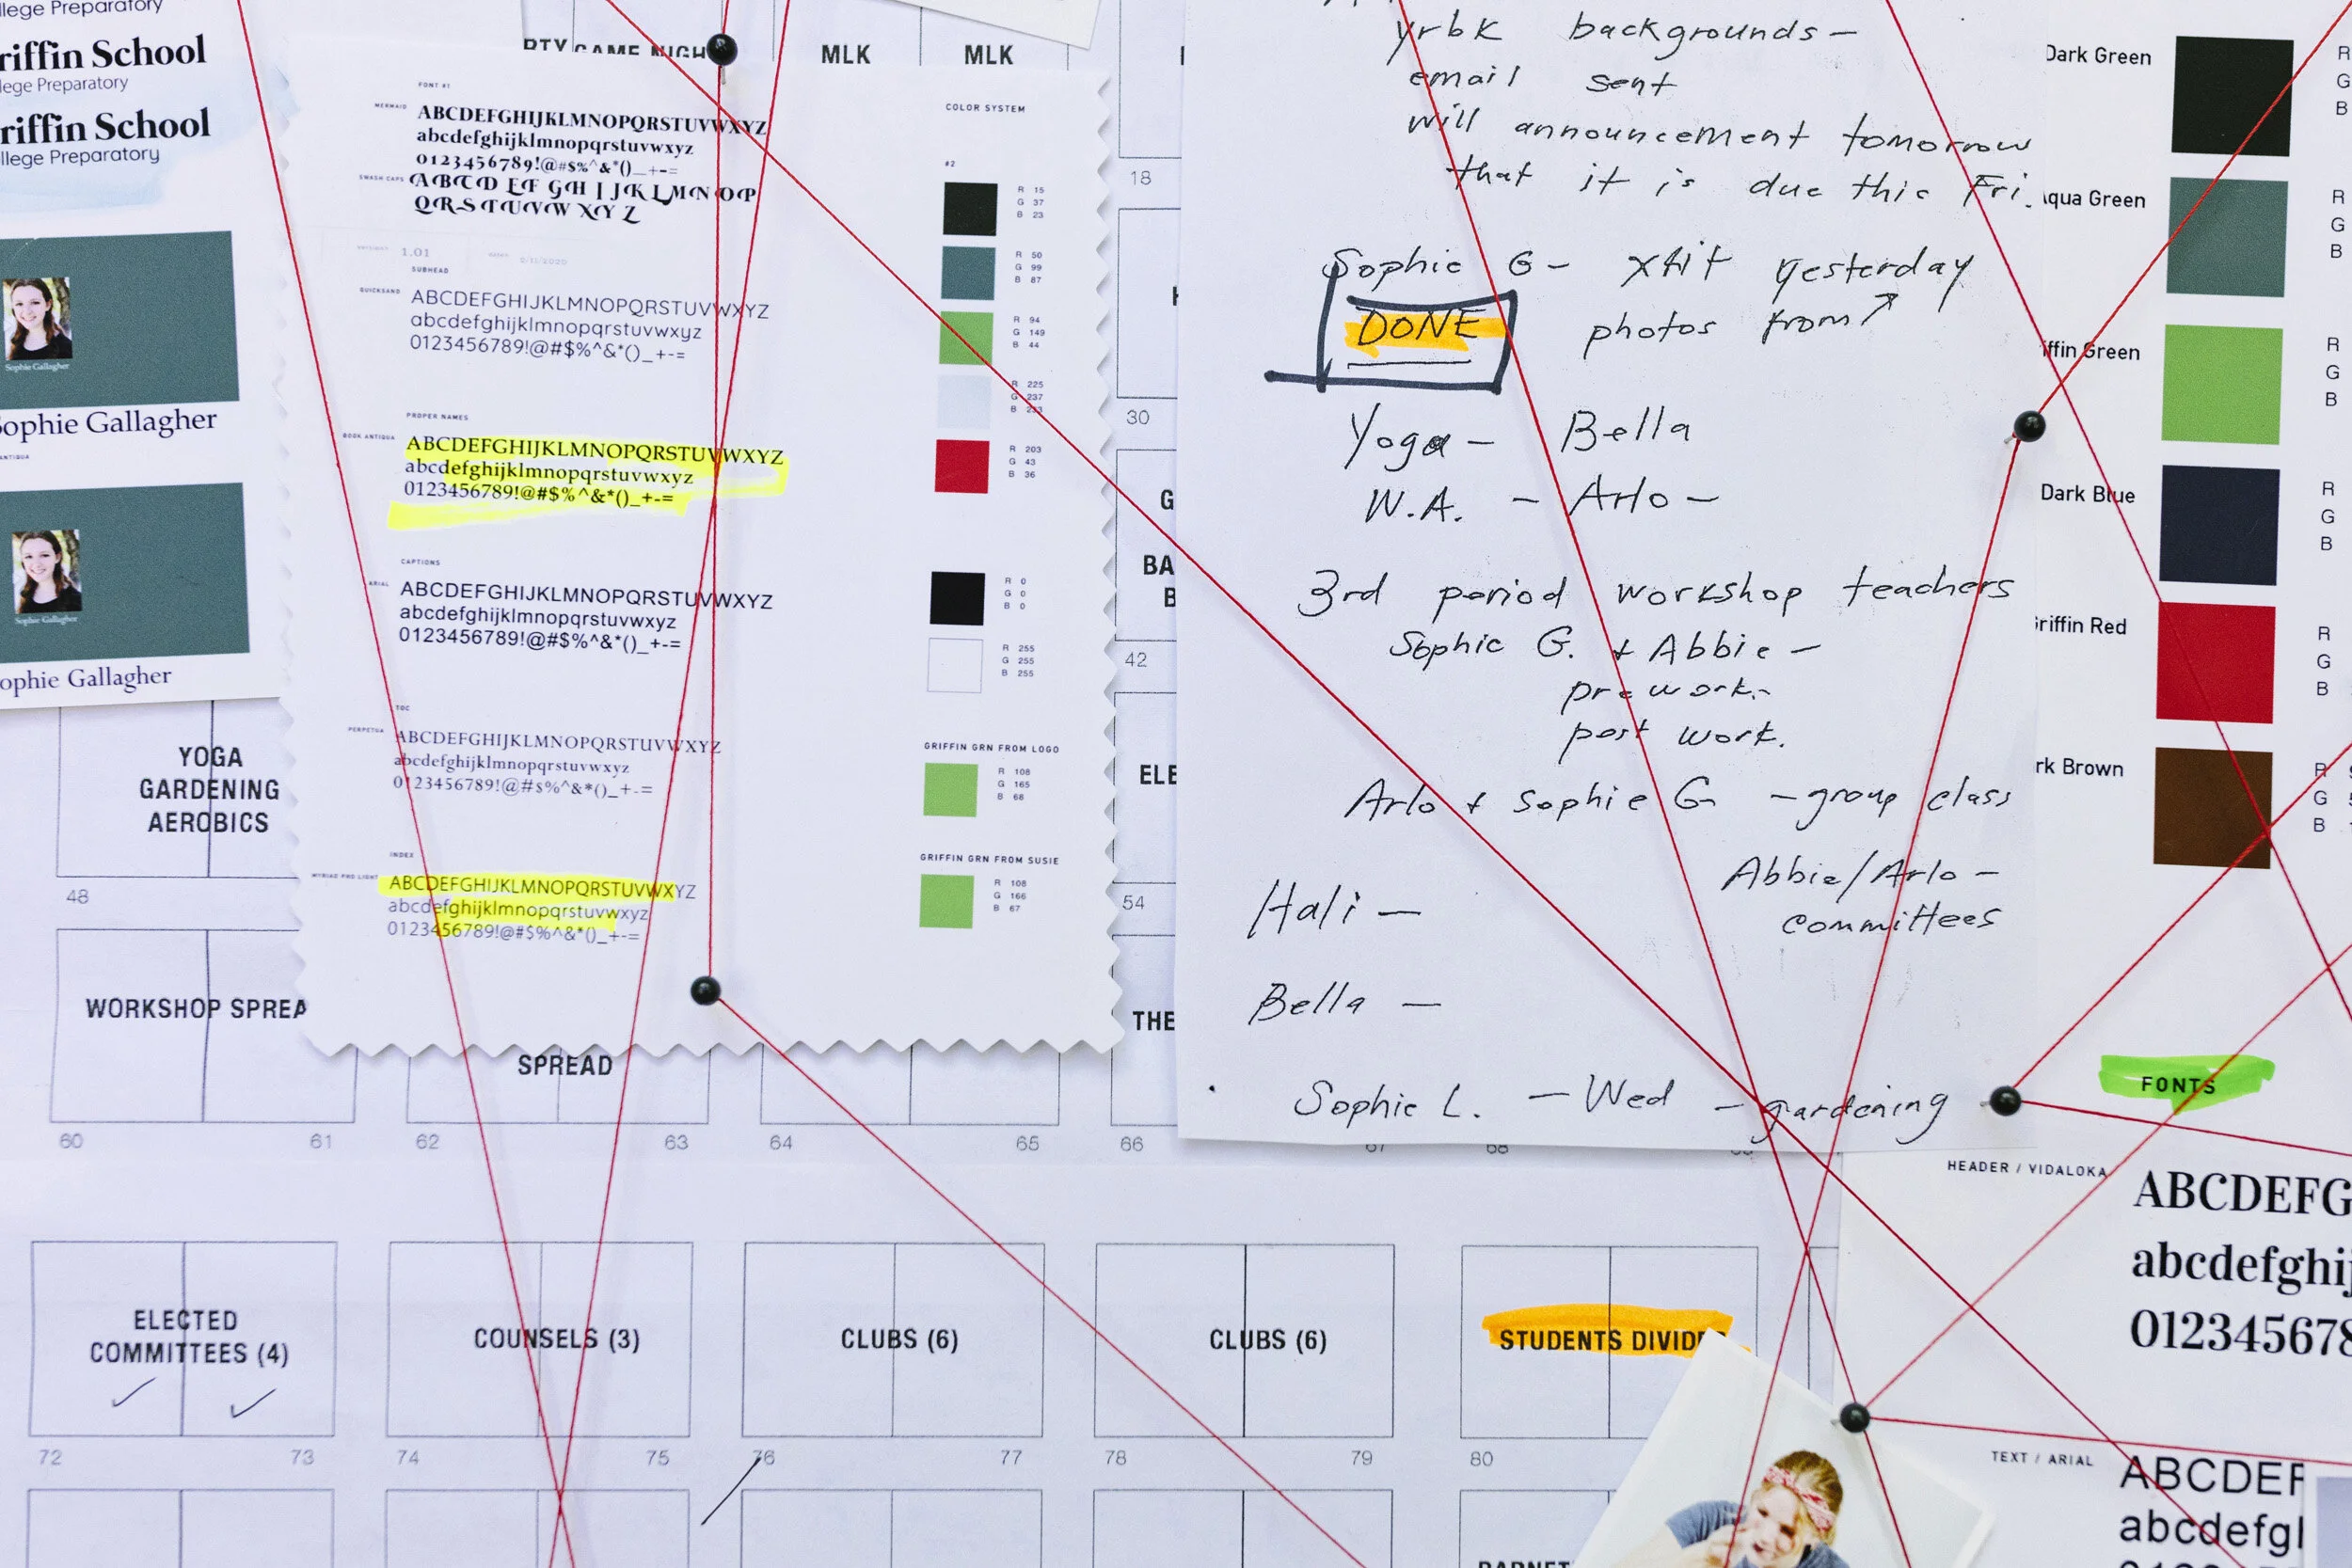 llege Preparatory
riffin School
lege Preparatory
riffin School
llege Preparatory
Sophie Gallagher
Sophie Gallagher
Sophie Gallagher
ophie Gallagher
MLK
MLK
FONT #1
MERMAID
ABCDEFGHIJKLMNOPQRSTUVWXYZ
abcdefghijklmnopqrstuvwxyz
0123456789!@#$%^&*()_+-=
SWASH CAPS
ABCD EF GH I JK LMN OP
QRS TUVW XY Z
1.01
SUBHEAD
QUICKSAND
ABCDEFGHIJKLMNOPQRSTUVWXYZ
abcdefghijklmnopqrstuvwxyz
0123456789!@#$%^&*()_+-=
PROPER NAMES
BOOK ANTIQUA
ABCDEFGHIJKLMNOPQRSTUVWXYZ
abcdefghijklmnopqrstuvwxyz
0123456789!@#$%^&*()_+-=
CAPTIONS
ARIAL
ABCDEFGHIJKLMNOPQRSTUVWXYZ
abcdefghijklmnopqrstuvwxyz
0123456789!@#$%^&*()_+-=
TOC
PERPETUA
ABCDEFGHIJKLMNOPQRSTUVWXYZ
abcdefghijklmnopqrstuvwxyz
0123456789!@#$%^&*()_+-=
INDEX
MYRIAD PRO LIGHT
ABCDEFGHIJKLMNOPQRSTUVWXYZ
abcdefghijklmnopqrstuvwxyz
0123456789!@#$%^&*()_+-=
COLOR SYSTEM
#2
R 15
G 37
B 23
R 50
G 99
B 87
R 94
G 149
B 44
R 225
G 237
B 233
R 203
G 43
B 36
R 0
G 0
B 0
R 255
G 255
B 255
GRIFFIN GRN FROM LOGO
R 108
G 165
B 68
GRIFFIN GRN FROM SUSIE
R 108
G 166
B 67
18
30
42
54
BA
B
ELE
THE
yrbk backgrounds –
email sent
will announcement tomorrow
that it is due this Fri.
Sophie G – yesterday
DONE
photos from
Yoga – Bella
W.A. – Arlo –
3rd period workshop teachers
Sophie G. + Abbie –
pre work.
post work.
Arlo + Sophie G – group class
Abbie/Arlo –
committees
Hali –
Bella –
Sophie L. – Wed – gardening
Dark Green
R
G
B
Aqua Green
R
G
B
iffin Green
R
G
B
Dark Blue
R
G
B
Griffin Red
R
G
B
rk Brown
R
G
B
FONTS
HEADER / VIDALOKA
ABCDEFG
abcdefghij
012345678
TEXT / ARIAL
ABCDEF
abcdefgl
YOGA
GARDENING
AEROBICS
48
WORKSHOP SPREA
SPREAD
60 61 62 63 64 65 66 67 68
ELECTED
COMMITTEES (4)
COUNSELS (3)
CLUBS (6)
CLUBS (6)
STUDENTS DIVIDE
72 73 74 75 76 77 78 79 80